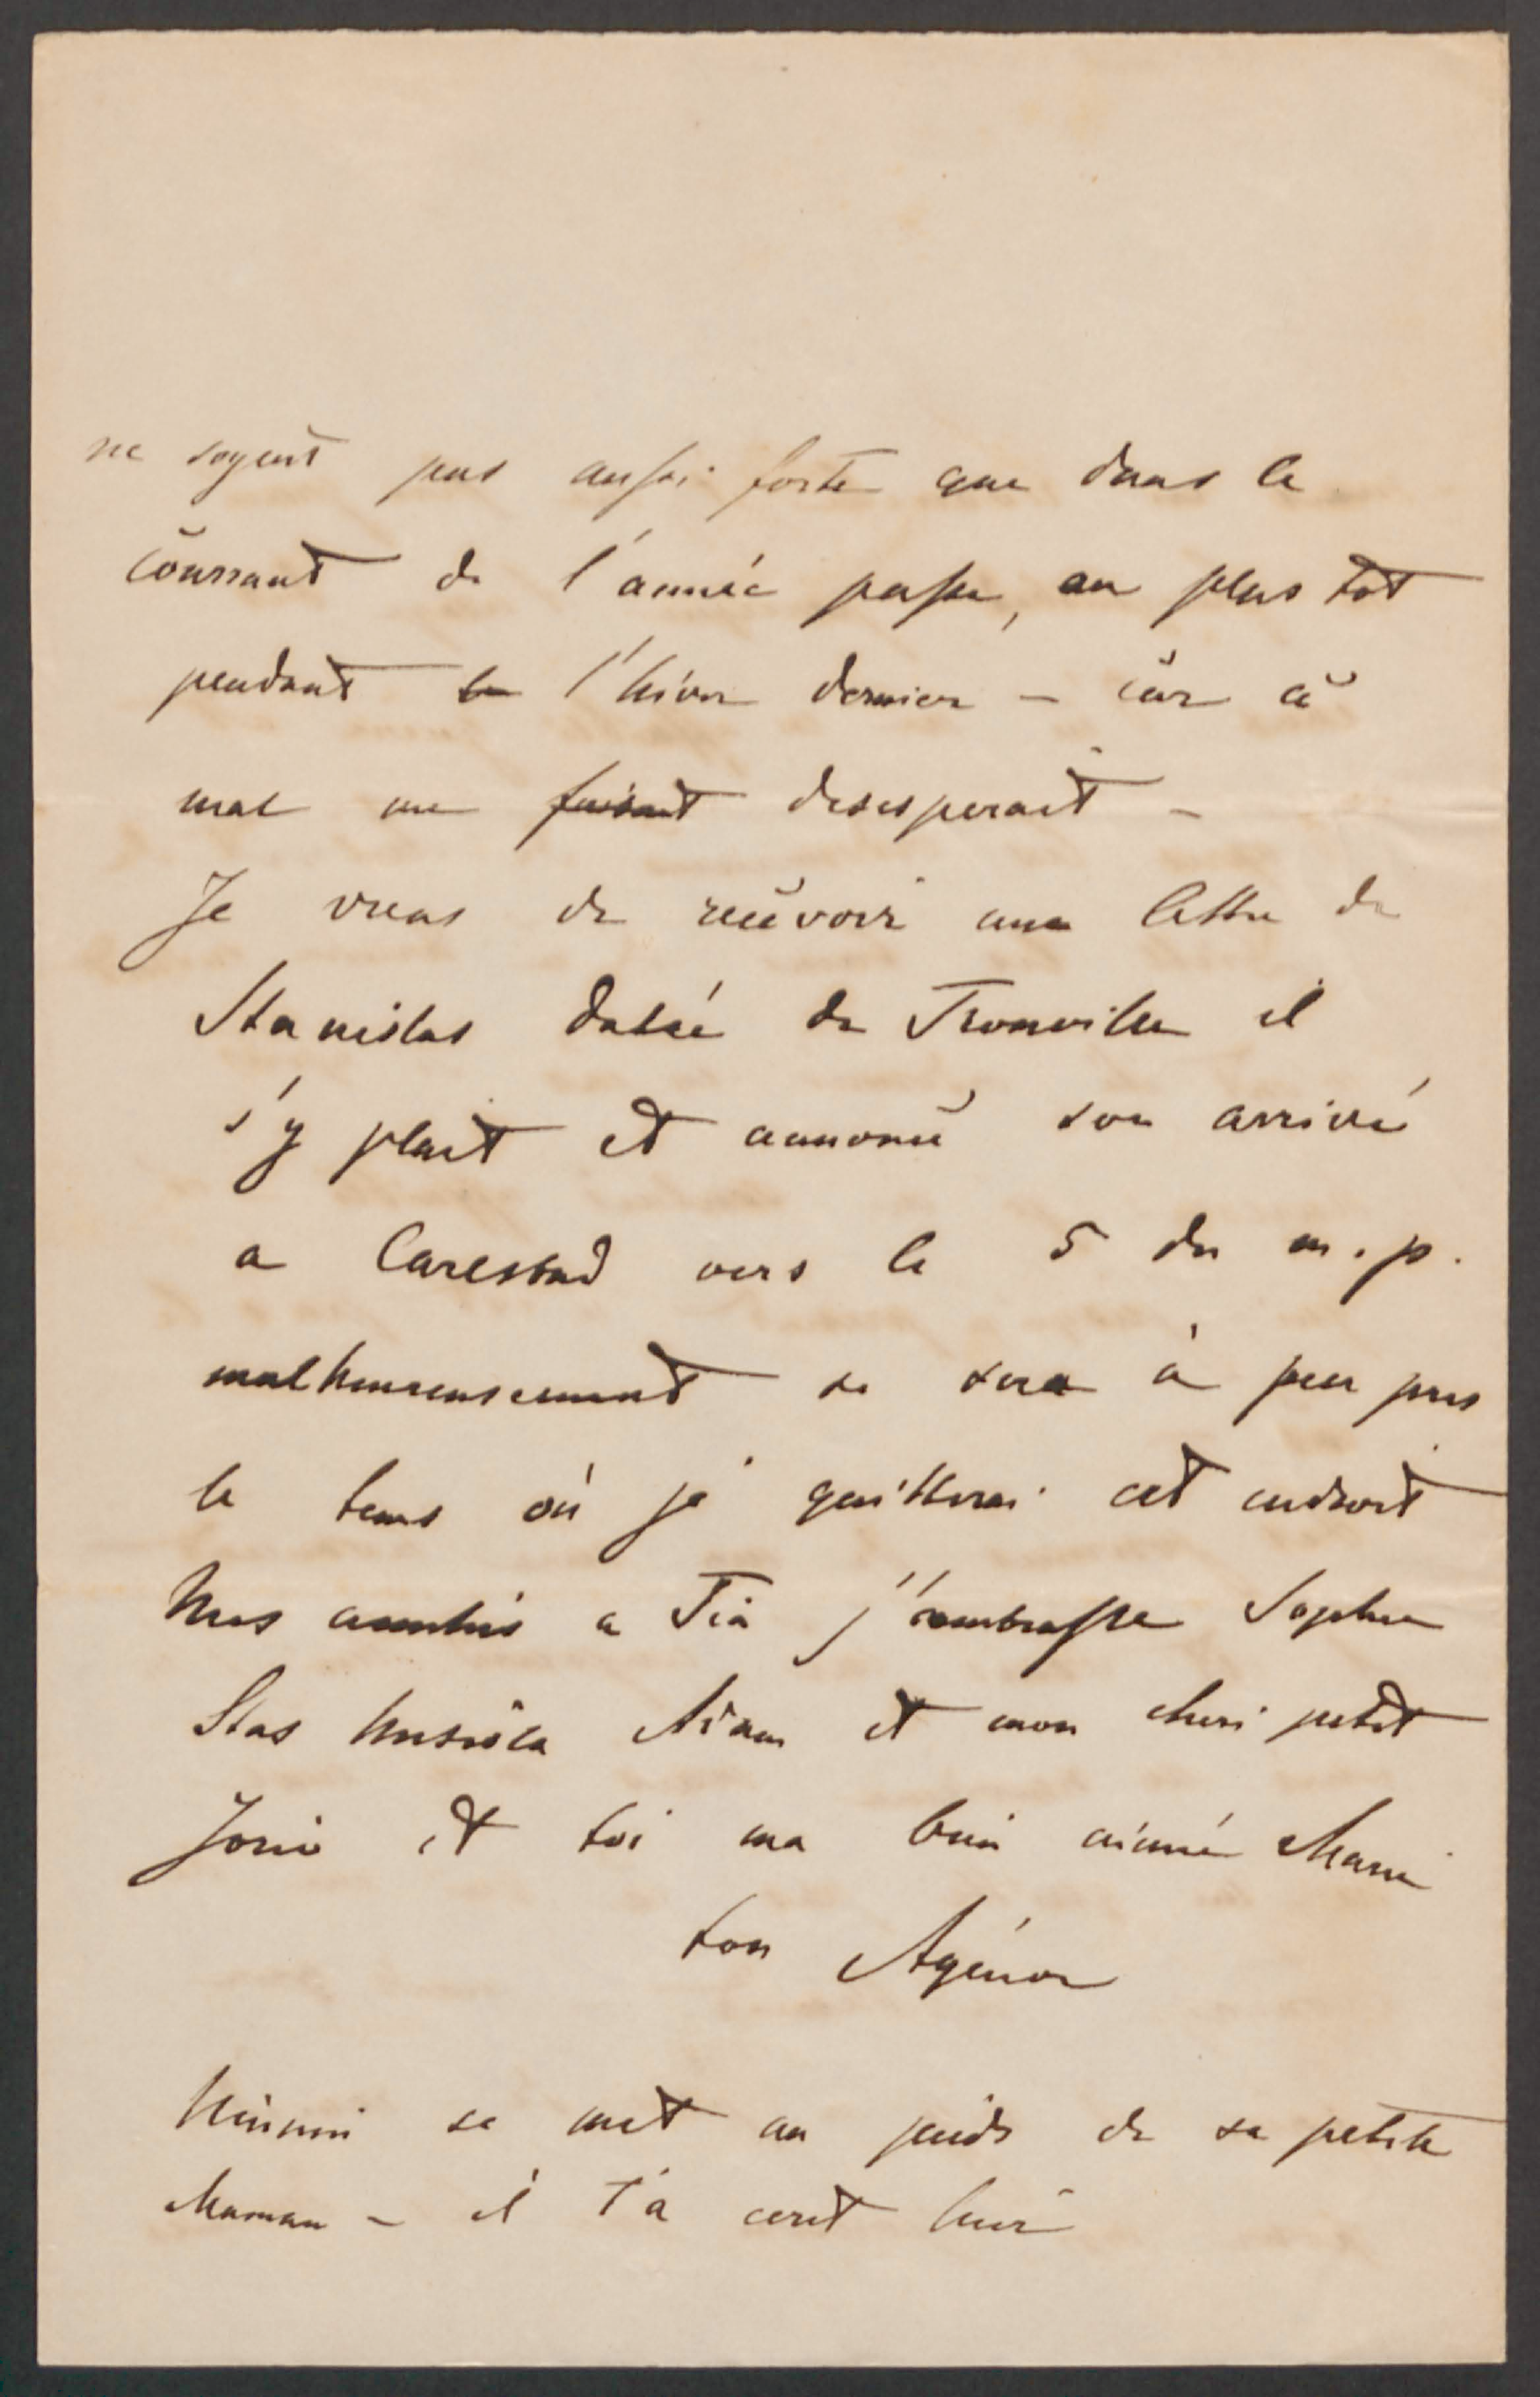 ne soyent pas aussi forte que dans le
courrant de l'année passe, au plus tot
pendant l'hiver dernier – car ce
mal me faisait desesperait –
Je viens de recevoir une lettre de
Stanislas datée de Trouville il
s'y plait et annonce son arrivé
a Carlsbad vers le 5 du m.p.
malheureusement se sera à peu pres
le tems où je quitterai cet endroit
Mes a Tia j'embrasse Sophie
Stas Adam et mon cheri petit
Jozio et toi ma bien aimé Marie
ton Agénor
se met au pieds de sa petite
Maman – il t'a ecrit hier